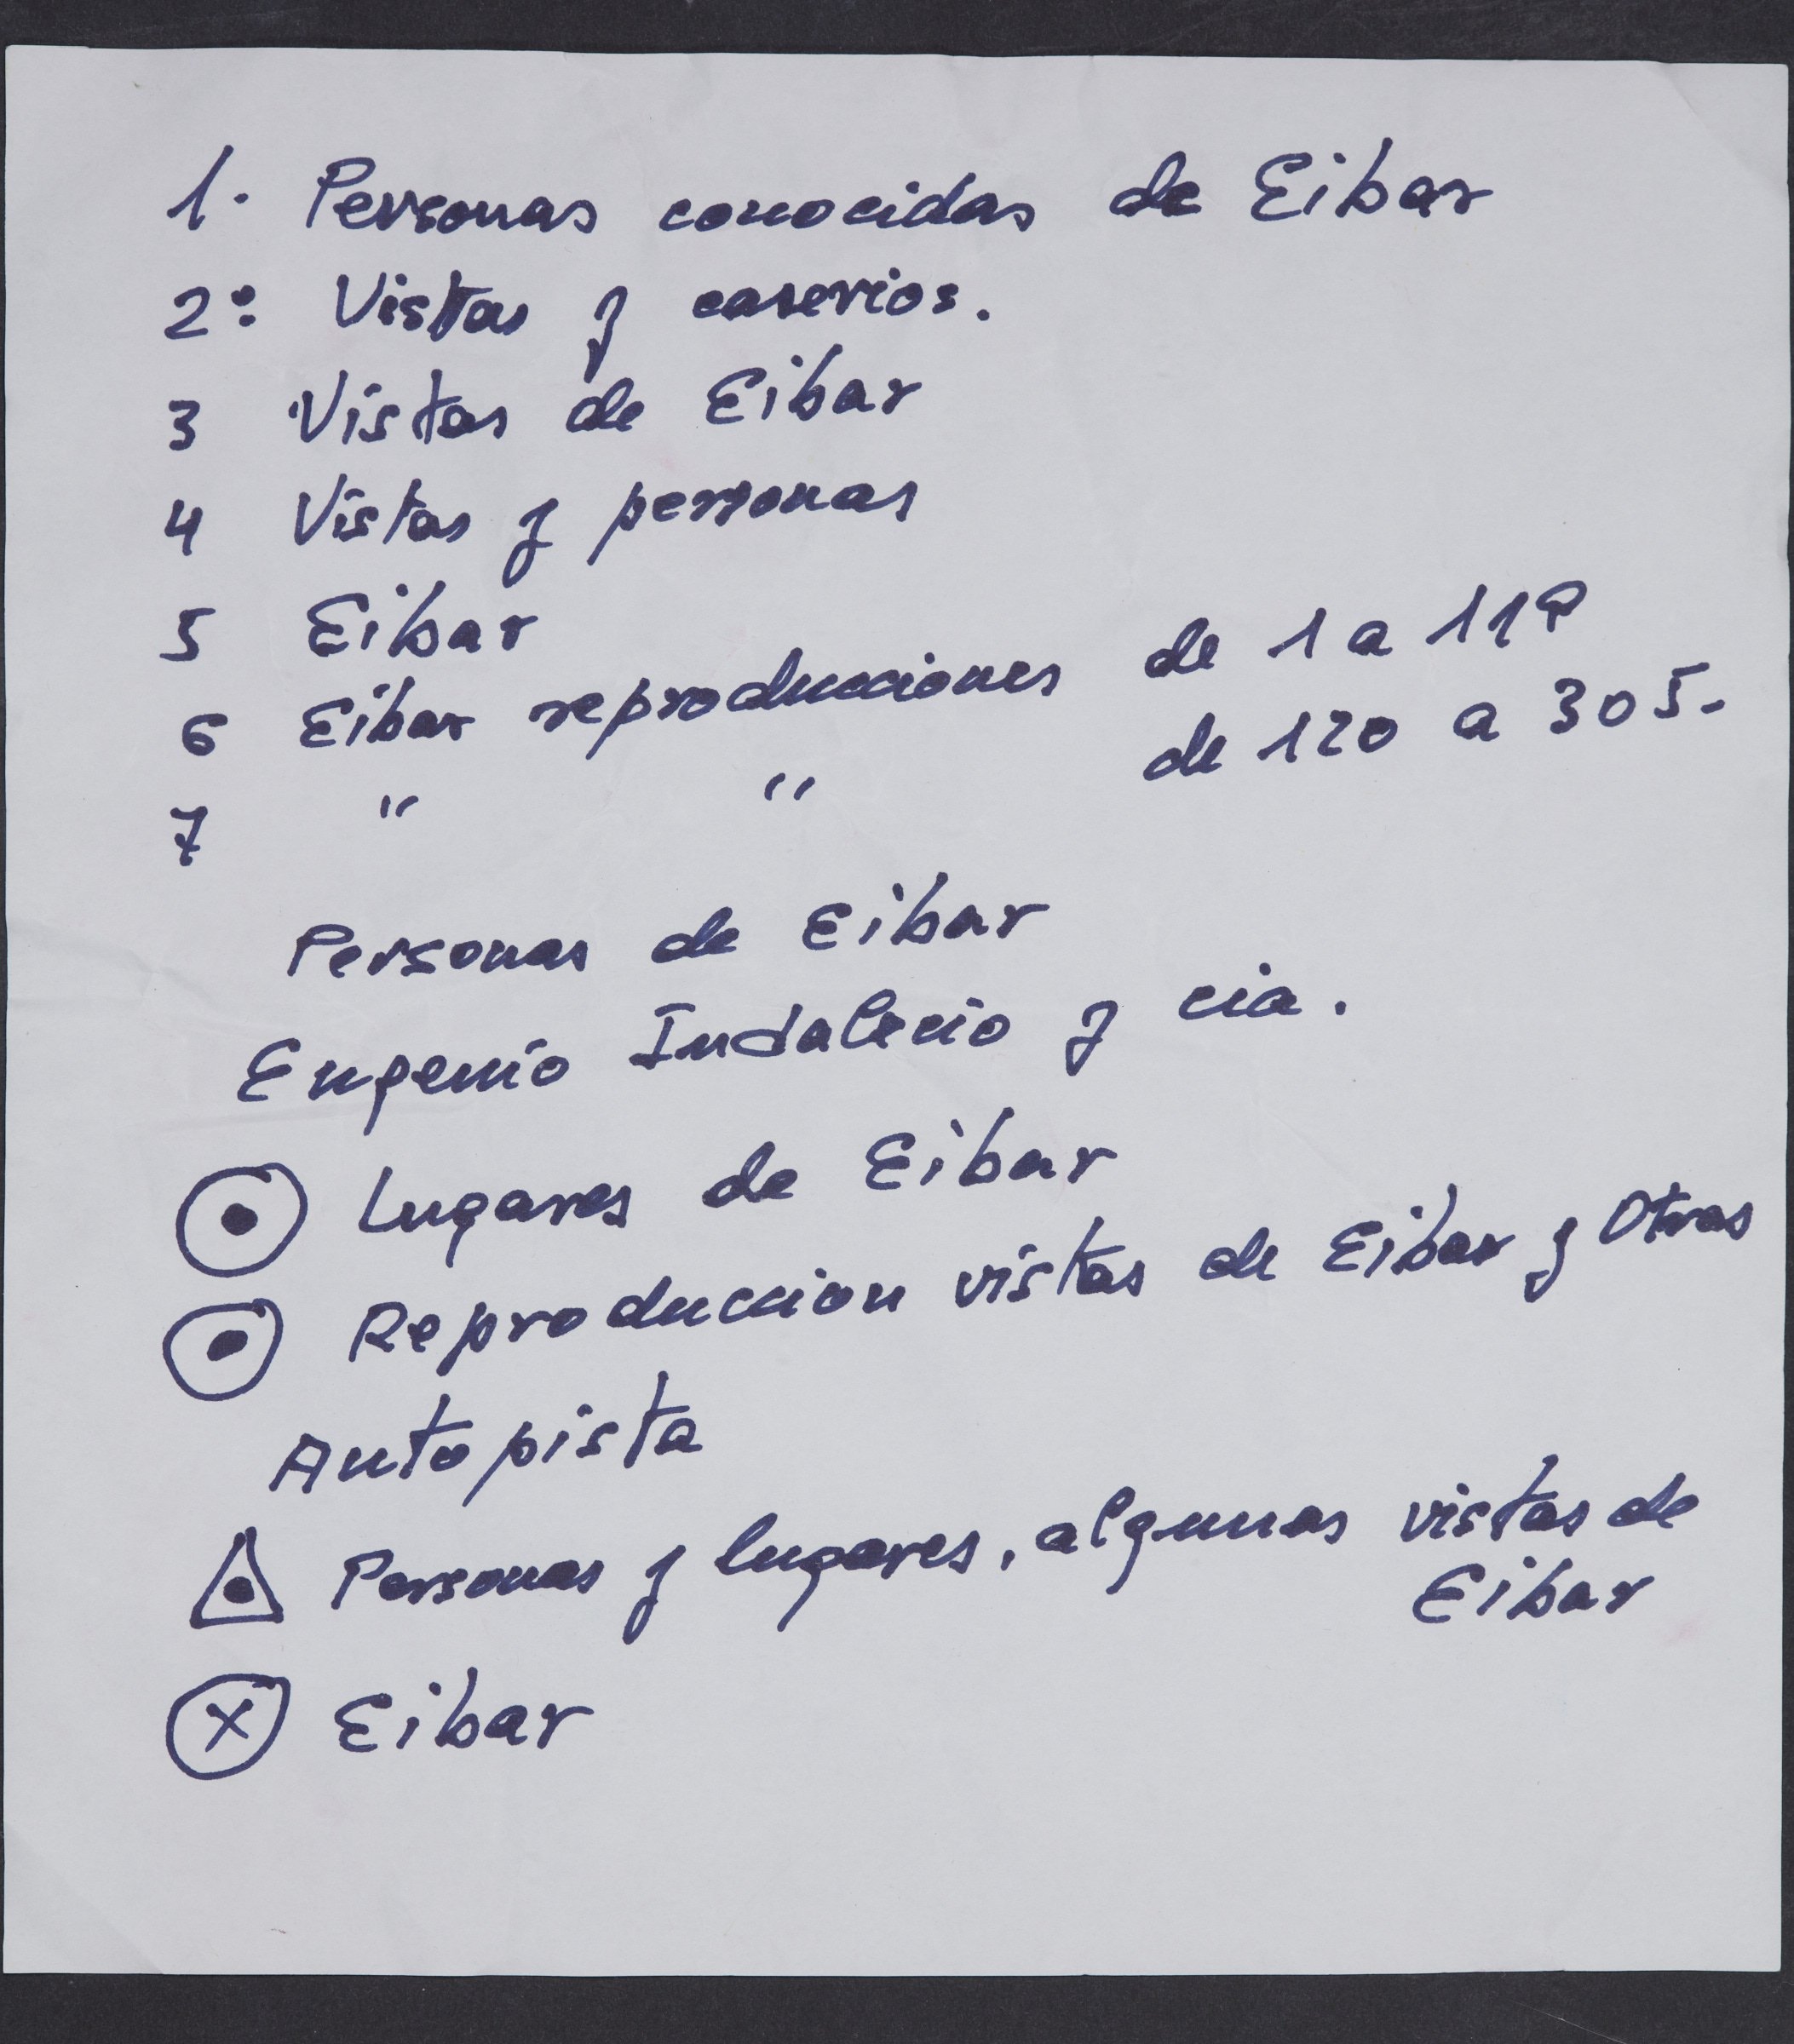 1. Personas conocidas de Eibar
2º: Vistas y caserios.
3 Vistas de Eibar
4 Vistas y personas
5 Eibar
6 Eibar reproducciones de 1 a 119
7 " " de 120 a 305-
Personas de Eibar
Eugenio Indalecio y cia.
Lugares de Eibar
Reproduccion vistas de Eibar y Otras
Autopista
Personas y lugares, algunas vistas de
Eibar
X Eibar